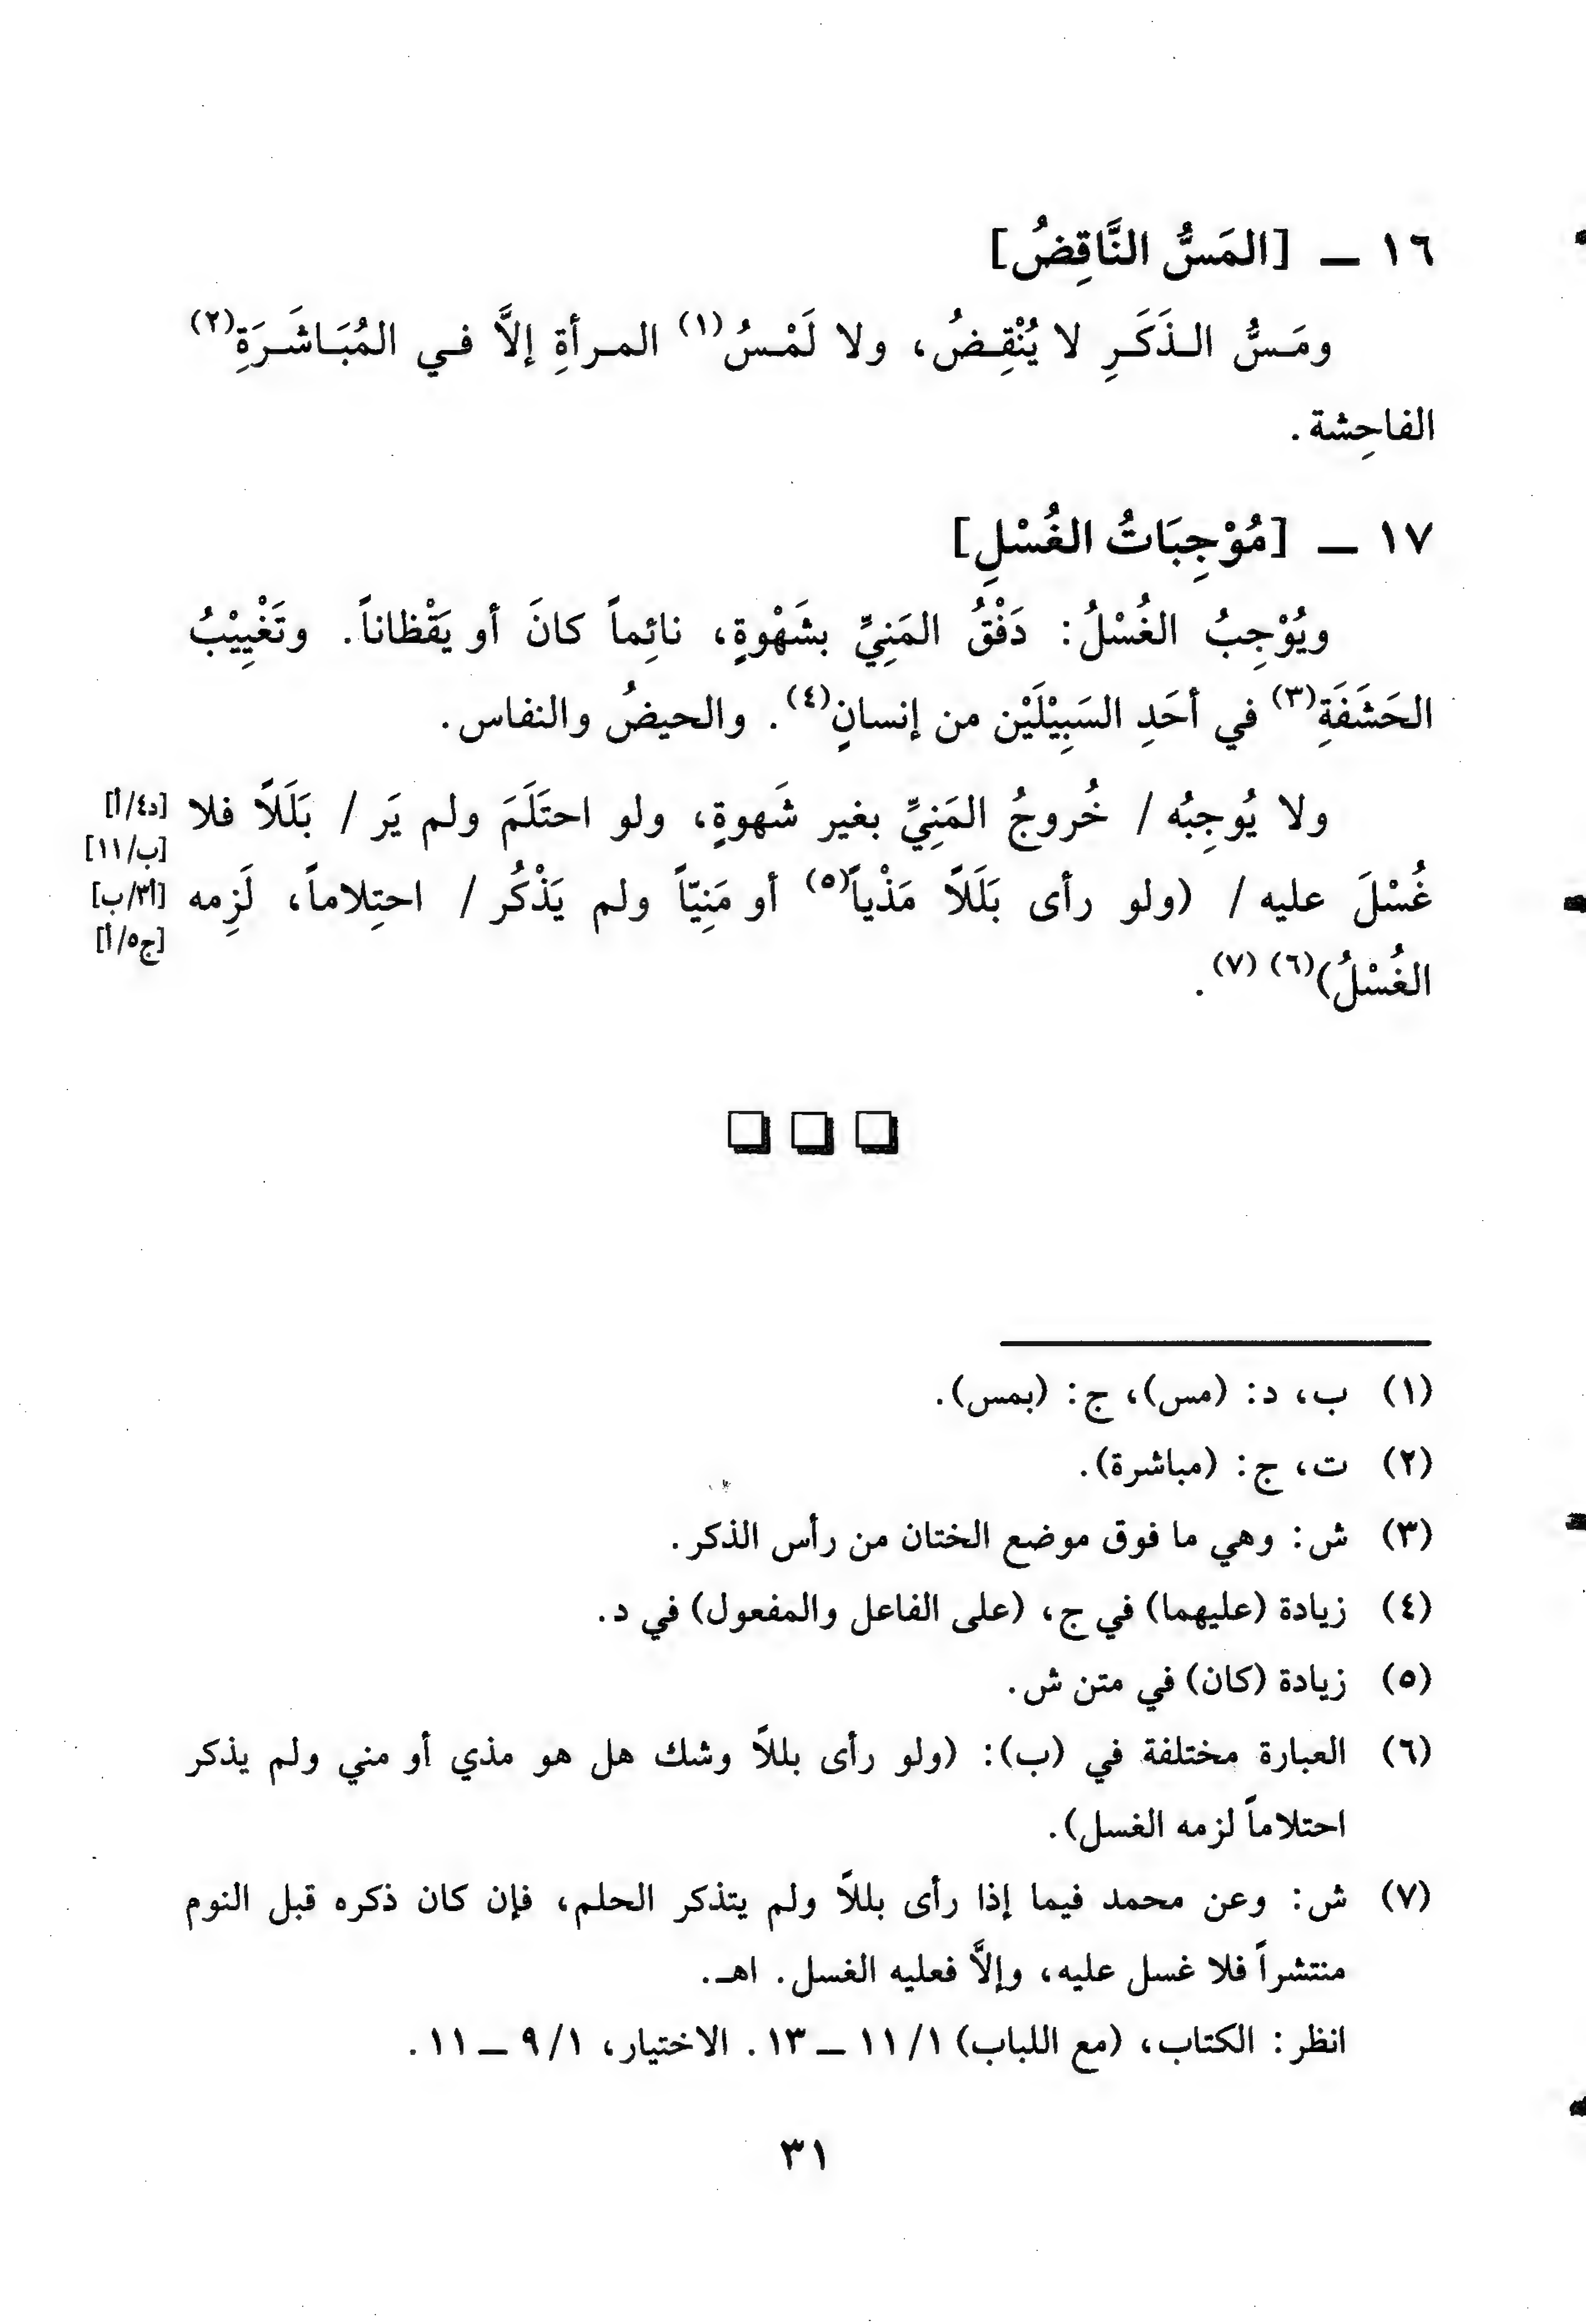 ١٦ ــ [المَسُّ النَّاقِضُ]
ومَـسُّ الـذَكَـرِ لا يُنْقِـضُ، ولا لَمْـسُ(١) المـرأةِ إلاَّ فـي المُبَـاشَـرَةِ(٢)
الفاحِشة.
١٧ ــ [مُوْجِبَاتُ الغُسْلِ]
ويُوْجِبُ الغُسْلُ: دَفْقُ المَنِيِّ بشَهْوةٍ، نائِماً كانَ أو يَقْظاناً. وتَغْيِيْبُ
الحَشَفَةِ(٣) في أحَدِ السَبِيْلَيْن من إنسانٍ(٤). والحيضُ والنفاس.
ولا يُوجِبُه / خُروجُ المَنِيِّ بغير شَهوةٍ، ولو احتَلَمَ ولم يَر / بَلَلاً فلا [د٤/أ]
[ب/١١]
غُسْلَ عليه / (ولو رأى بَلَلاً مَذْياً(٥) أو مَنِيّاً ولم يَذْكُر / احتِلاماً، لَزِمه [أ٣/ب]
[ج٥/أ]
الغُسْلُ)(٦) (٧).
(١) ب، د: (مس)، ج: (بمس).
(٢) ت، ج: (مباشرة).
(٣) ش: وهي ما فوق موضع الختان من رأس الذكر.
(٤) زيادة (عليهما) في ج، (على الفاعل والمفعول) في د.
(٥) زيادة (كان) في متن ش.
(٦) العبارة مختلفة في (ب): (ولو رأى بللاً وشك هل هو مذي أو مني ولم يذكر
احتلاماً لزمه الغسل).
(٧) ش: وعن محمد فيما إذا رأى بللاً ولم يتذكر الحلم، فإن كان ذكره قبل النوم
منتشراً فلا غسل عليه، وإلاَّ فعليه الغسل. اهـ.
انظر: الكتاب، (مع اللباب) ١/١١ ــ ١٣. الاختيار، ١/٩ ــ ١١.
٣١